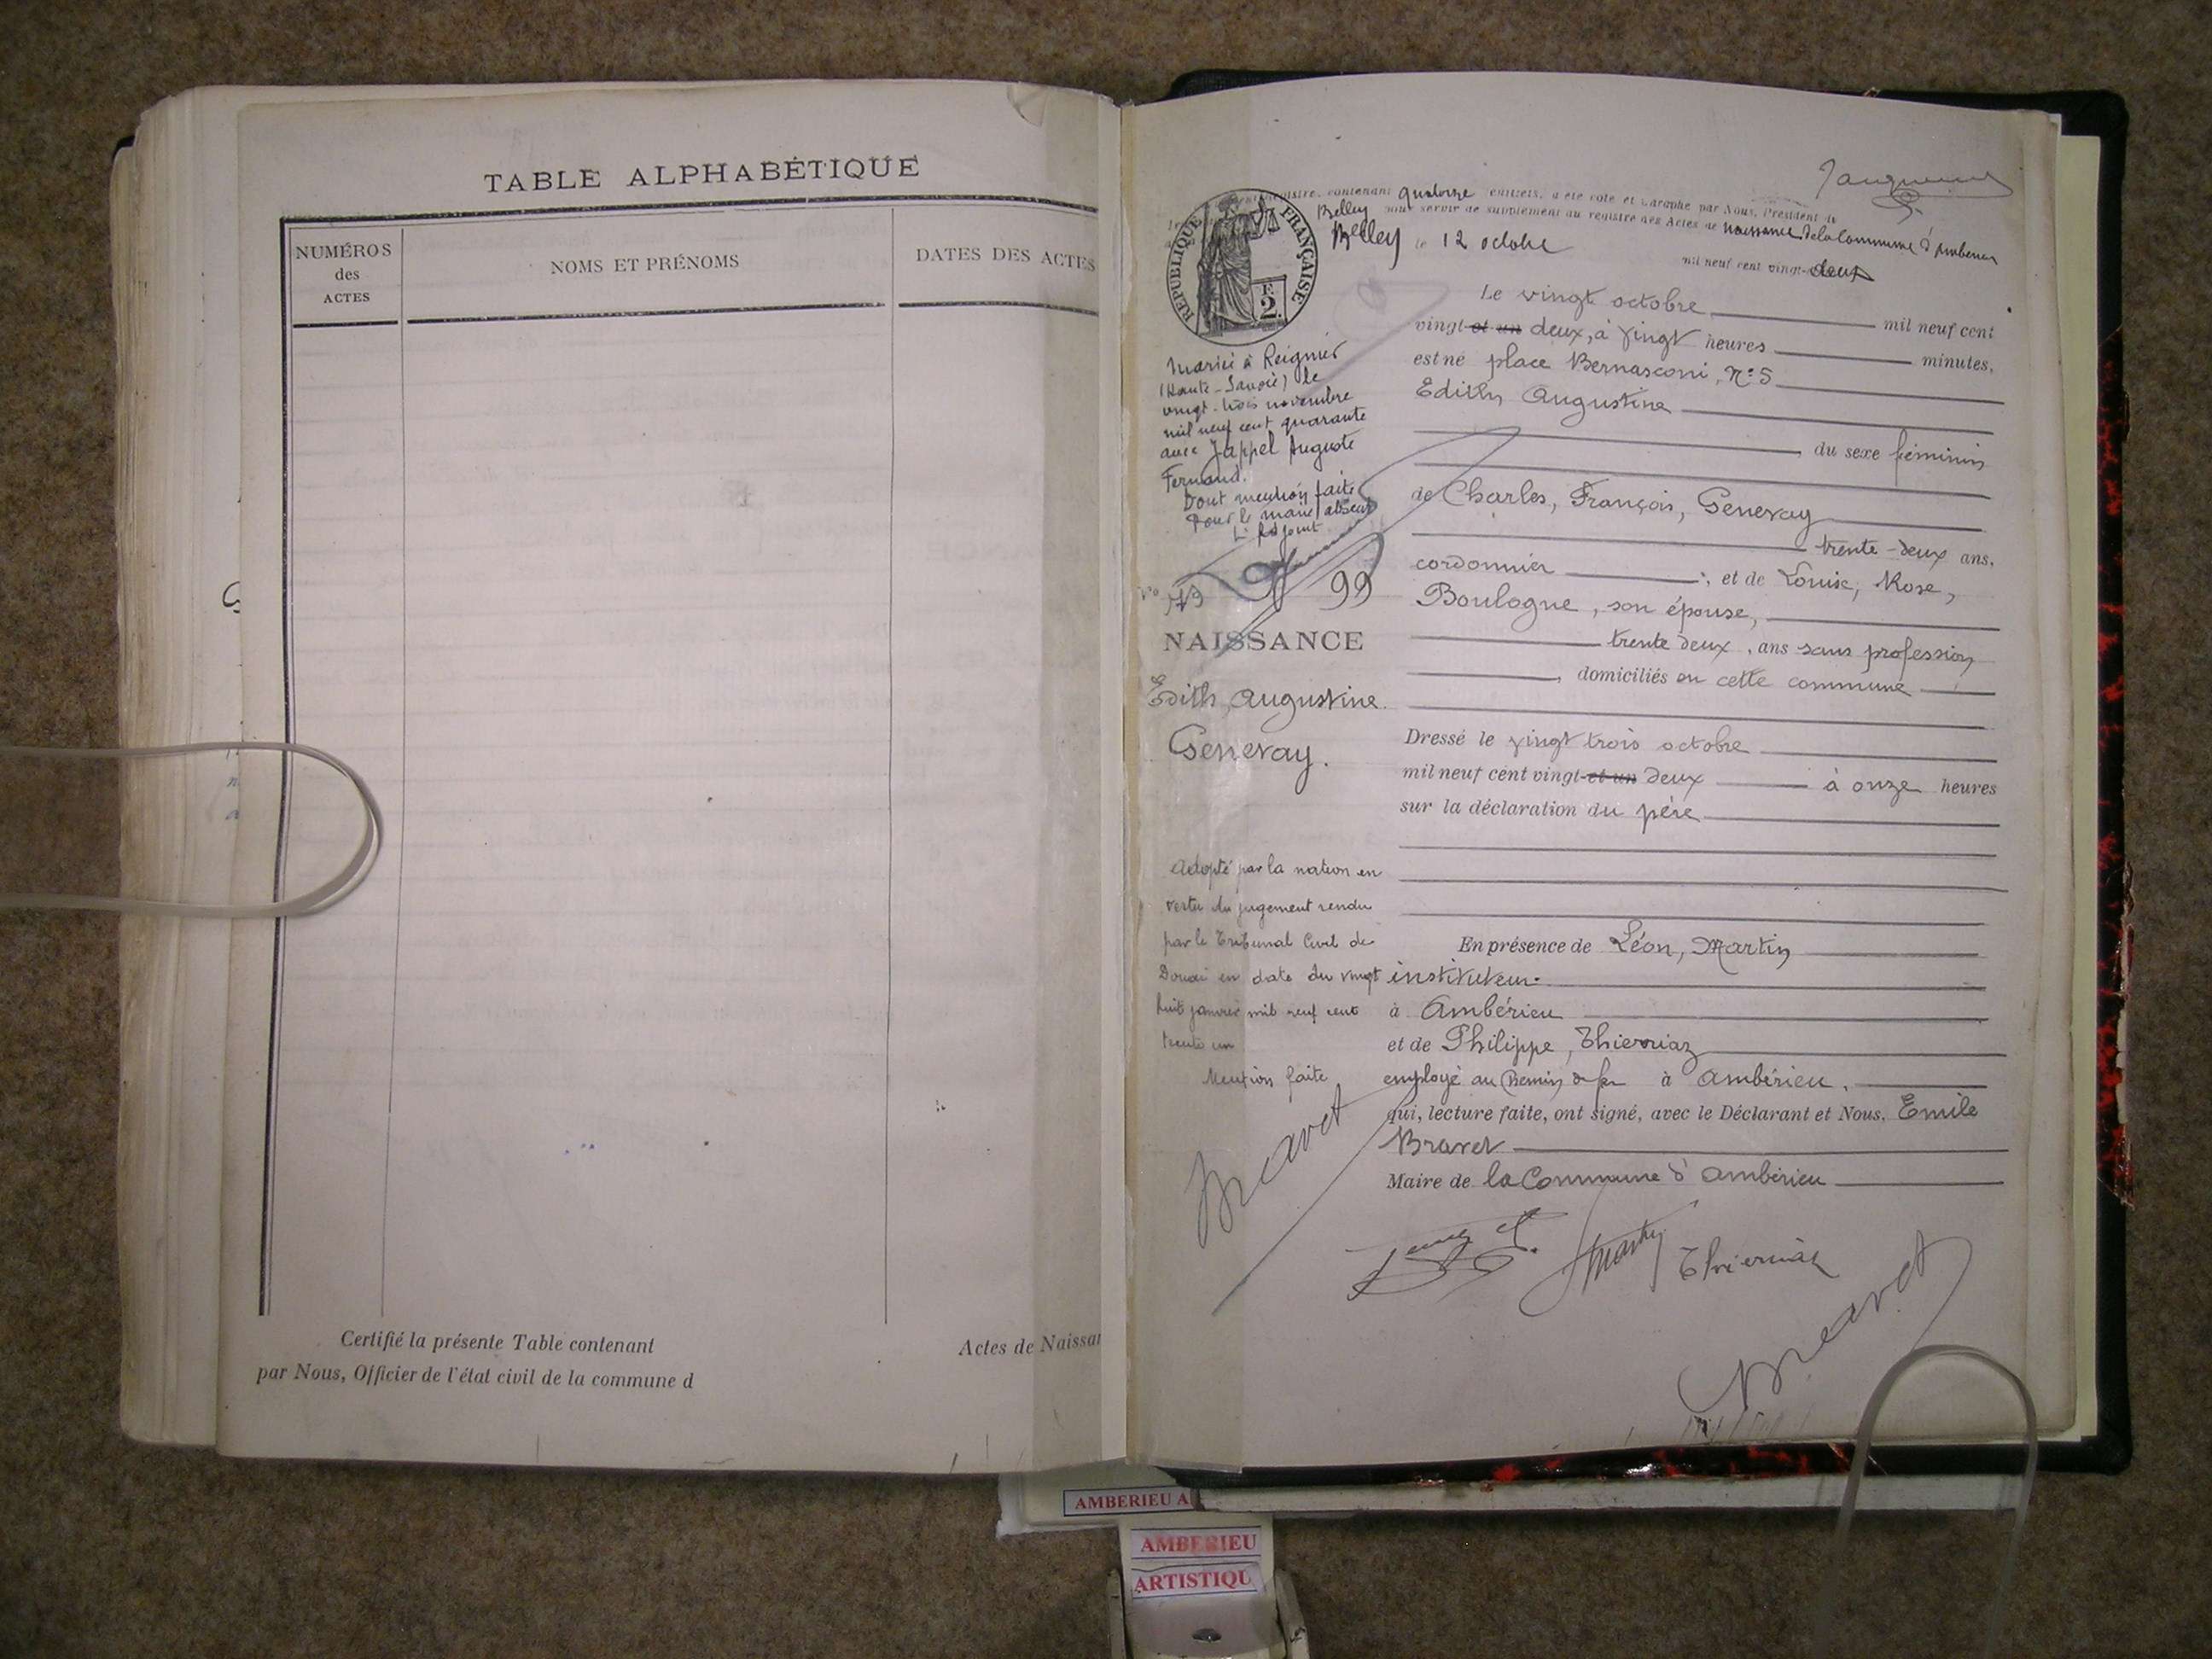 TABLE ALPHABÉTIQUE
NUMÉROS
des
ACTES
NOMS ET PRÉNOMS
DATES DES ACTES
Certifié la présente Table contenant
Actes de Naissan
par Nous, Officier de l'état civil de la commune d
REPUBLIQUE FRANÇAISE
F.
2.
contenant quatorze feuillets, a été coté et paraphé par Nous, Président du
Belley pour servir de supplément au registre des Actes de naissance de la Commune d'Ambérieu
Belley le 12 octobre
mil neuf cent vingt-deux
Le vingt octobre mil neuf cent
vingt-et un deux, à vingt heures minutes,
est né place Bernasconi, N° 5
Edith Augustine
du sexe féminin
de Charles, François, Genevay
trente-deux ans,
cordonnier, et de Louise, Rose,
Boulogne, son épouse,
trente deux, ans sans profession
, domiciliés en cette commune
Dressé le vingt trois octobre
mil neuf cent vingt-et un deux à onze heures
sur la déclaration du père
En présence de Léon, Martin
instituteur
à Ambérieu
et de Philippe, Thierriaz
employé au Chemin de fer à Ambérieu,
qui, lecture faite, ont signé, avec le Déclarant et Nous, Emile
Bravet
Maire de la Commune d'Ambérieu
Martin Thierriaz
Bravet
Mariée à Reignier
(Haute-Savoie) le
vingt-trois novembre
mil neuf cent quarante
avec Jappel Auguste
Fernand.
Dont mention faite
Pour le maire absent
L'Adjoint
No 99
NAISSANCE
Edith, Augustine
Genevay.
Adopté par la nation en
vertu du jugement rendu
par le Tribunal Civil de
Douai en date du vingt
huit janvier mil neuf cent
trente un
Mention faite
Bravet
AMBERIEU A
AMBERIEU
ARTISTIQU